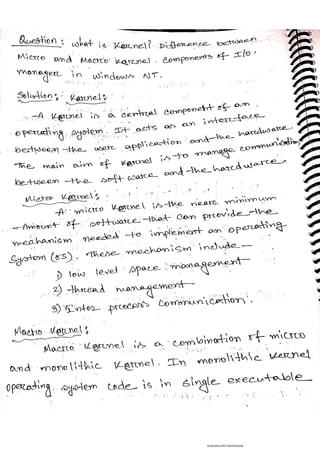 Question: What is Kernel? Difference between
Micro and Macro Kernel. Components of I/O
manager in Windows NT.
Solution: Kernel:
A Kernel is a central component of an
operating system. It acts as an interface
between the user application and the hardware.
The main aim of Kernel is to manage communication
between the software and the hardware.
Micro Kernel:
A micro Kernel is the near minimum
Amount of software that can provide the
mechanism needed to implement an operating
System (OS). These mechanism include
1) low level space management
2) thread management
3) Inter process Communication.
Macro Kernel:
Macro Kernel is a combination of micro
and monolithic Kernel. In monolithic Kernel
operating system code is in single executable
Scanned with CamScanner